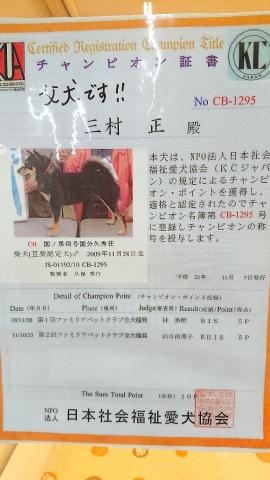 Certified Registration Champion Title
KC
JAPAN
チャンピオン証書
父犬です!!
No CB-1295
三村 正 殿
本犬は、NPO法人日本社会
福祉愛犬協会(KCジャパ
ン)の規定によるチャンピ
オン・ポイントを獲得し、
適格と認定されたのでチャ
ンピオン名簿第CB-1295号
に登録しチャンピオンの称
号を授与します。
CH 国ノ黒稲号国分久秀荘
柴犬(豆柴認定犬)♂ 2009年11月28日生
JS-01192/10 CB-1295
平成 23年 11月 7日発行
Detail of Champion Point (チャンピオン・ポイント記録)
Date (年月日) Place (場所) Judge(審査員) Result(成績) Point(得点)
10/11/28 第1回ファミリアペットクラブ全犬種展 林 秀樹 BIS 5P
11/10/23 第2回ファミリアペットクラブ全犬種展 山口由美子 RBIS 5P
The Sum Total Point (合計) 10P
NPO
法人 日本社会福祉愛犬協会